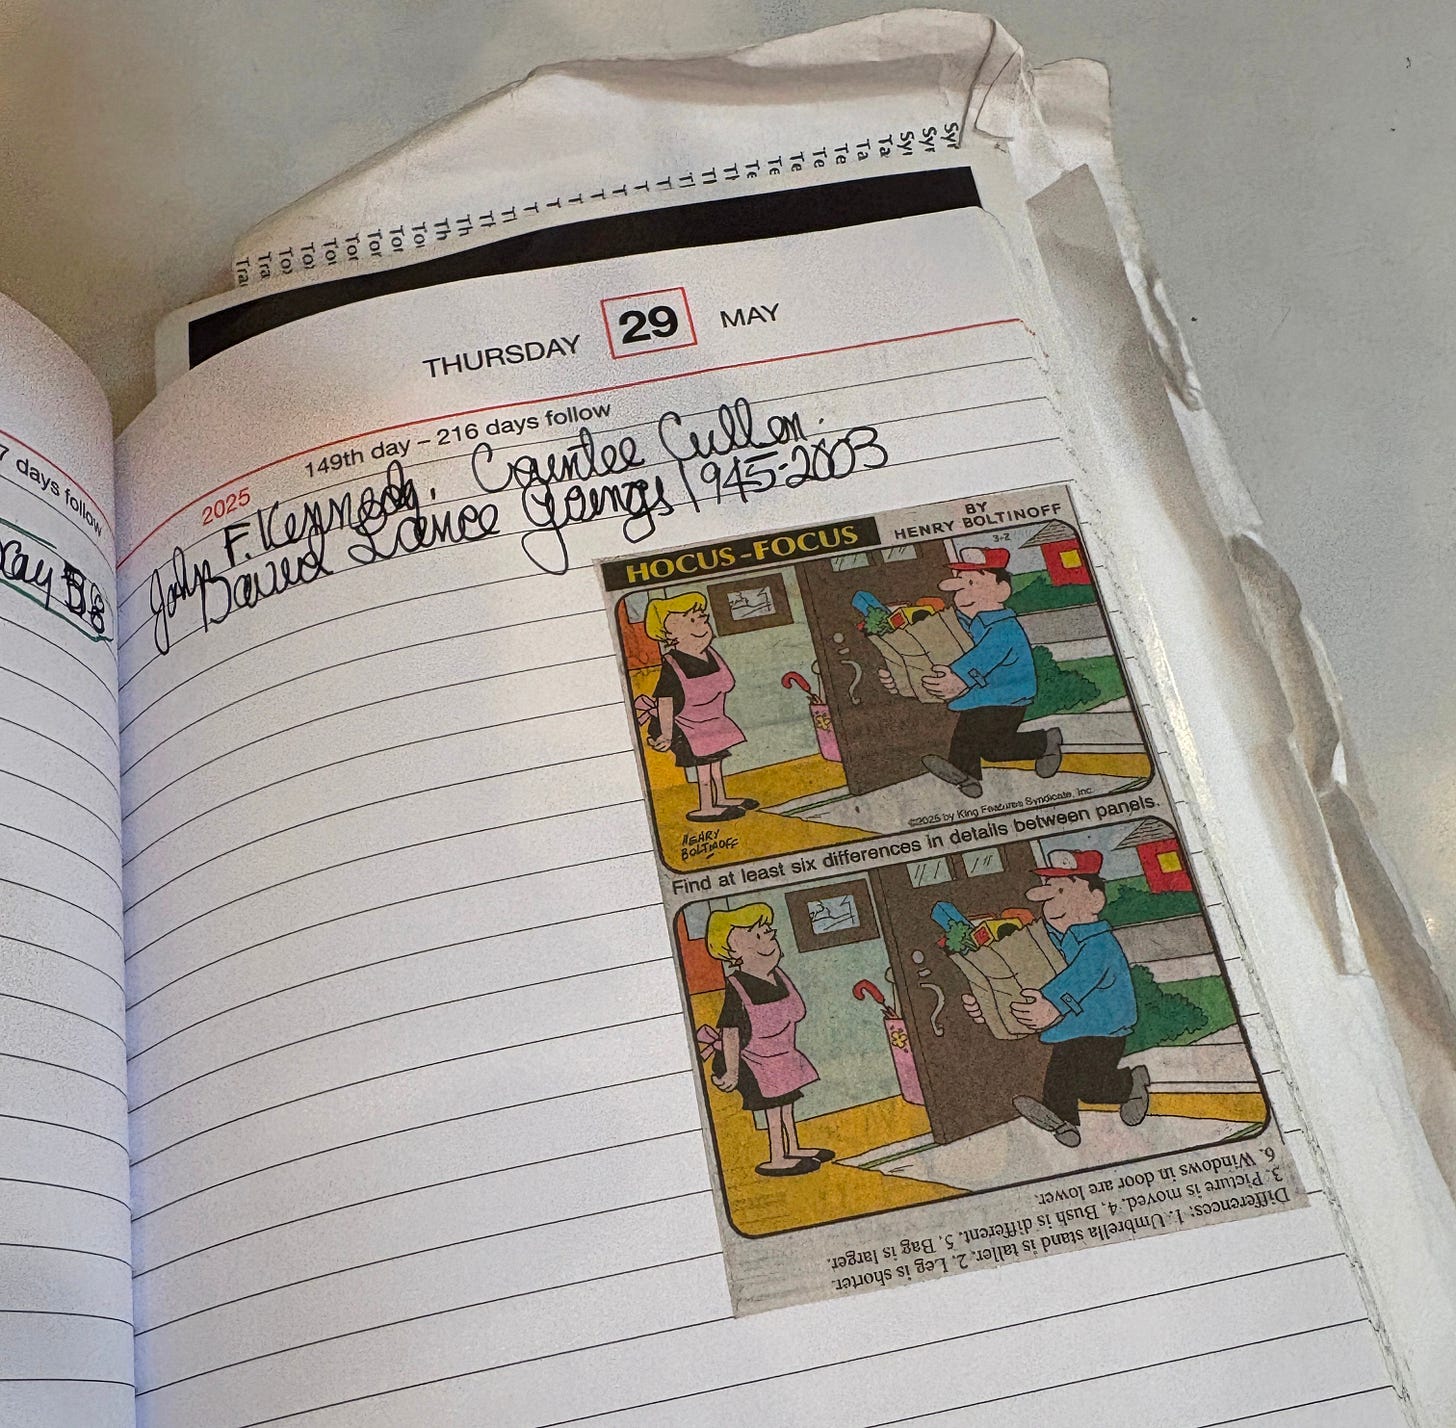 Syr
Syr
Syr
Ta
Ta
Te
Te
Te
Te
Te
Th
Tor
Tor
Tor
Tra
Tra
THURSDAY 29 MAY
2025 149th day – 216 days follow
John F. Kennedy. Countee Cullen.
David Lance Goings 1945-2003
7 days follow
HOCUS-FOCUS
BY
HENRY BOLTINOFF
3-2
HENRY
BOLTINOFF
©2025 by King Features Syndicate, Inc.
Find at least six differences in details between panels.
Differences: 1. Umbrella stand is taller. 2. Leg is shorter.
3. Picture is moved. 4. Bush is different. 5. Bag is larger.
6. Windows in door are lower.